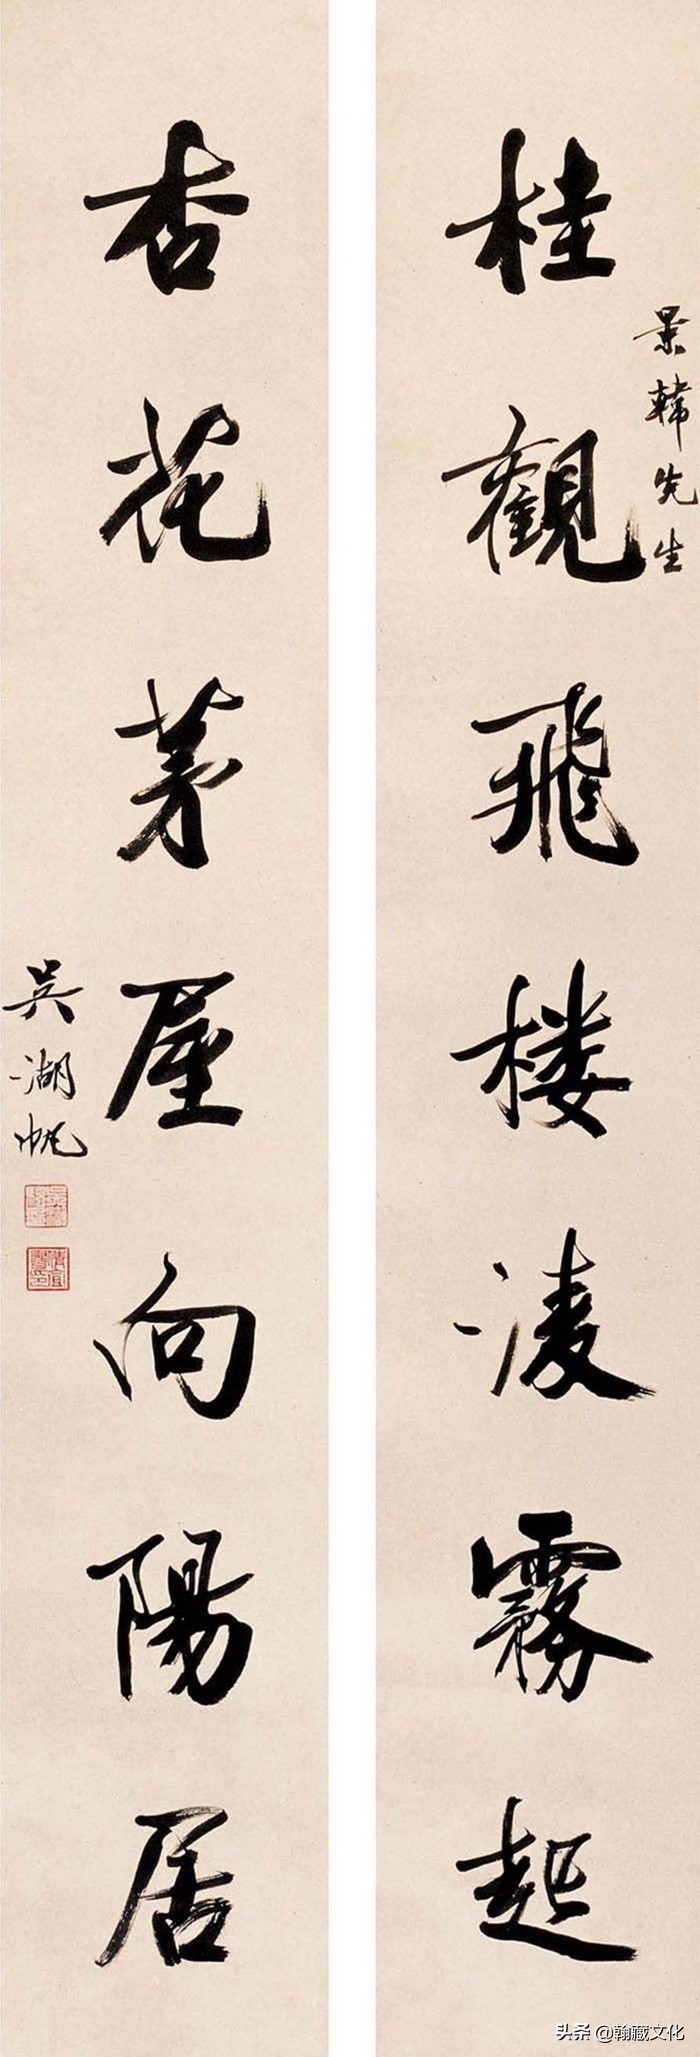 景韓先生
桂觀飛楼淩霧起
杏花茅屋向陽居
吳湖帆
头条 @翰藏文化